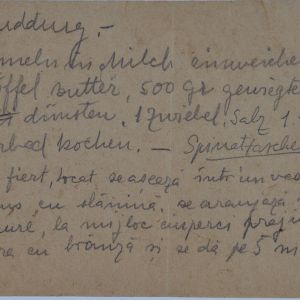 udding. -
meln in Milch einweichen
öffel Butter, 500 gr gewiegte
dünsten, 1 Zwiebel, Salz 1
bad kochen. — Spinattasche
fiert, tocat se asează într'un vas
uns cu slănină, se aranjază
ure, la mijloc ciuperci praji
ra cu brânză și se dă pe 5 mi